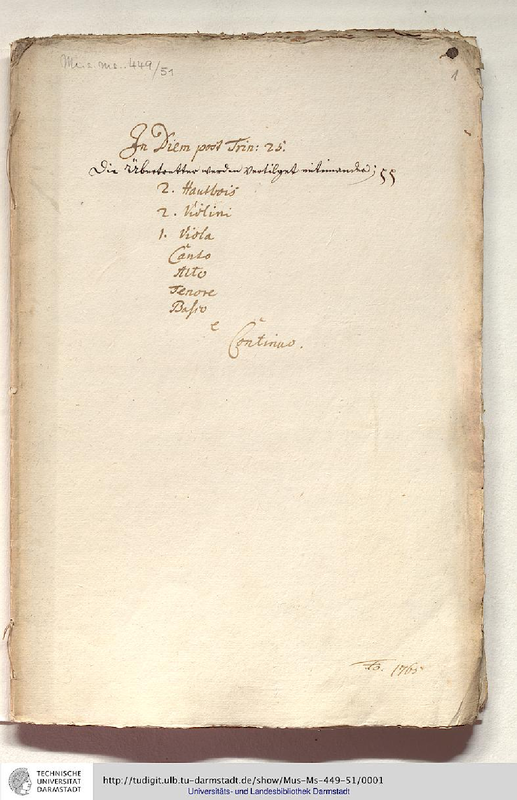 Mus. ms. 449/51
1
In Diem post Trin: 25.
Die Übertretter werden vertilget miteinander; 55
2. Hautbois
2. Violini
1. Viola
Canto
Alto
Tenore
Basso
e
Continuo.
1765
TECHNISCHE
UNIVERSITÄT
DARMSTADT
http://tudigit.ulb.tu-darmstadt.de/show/Mus-Ms-449-51/0001
Universitäts- und Landesbibliothek Darmstadt